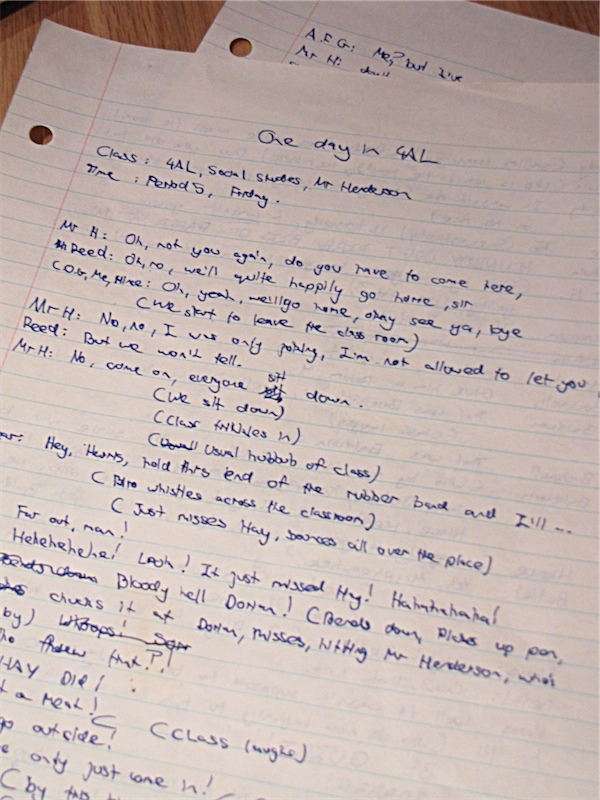 A.F.G: Me? but I've
Mr H:
One day in 4AL
Class: 4AL, Social Studies, Mr Henderson
Time: Period 5, Friday.
Mr H: Oh, not you again, do you have to come here,
Reed: Oh, no, we'll quite happily go home, sir
Me, Hine: Oh, yeah, we'll go home, okay see ya, bye
(We start to leave the class room)
Mr H: No, no, I was only joking, I'm not allowed to let you
Reed: But we won't tell.
Mr H: No, come on, everyone sit down.
(We sit down)
(Class in)
(Usual hubbub of class)
Hey, hold this end of the rubber band and I'll...
(Biro whistles across the classroom)
(Just misses Hay, bounces all over the place)
Far out, man!
Hehehehehe! Look! It just missed Hay! Hahahahaha!
Bloody hell Dorian! (Bends down, Picks up pen,
chucks it at Dorian, misses, hitting Mr Henderson, who's
by) Whoops!
threw that?!
HAY DID!
a meat!
go outside! (Class laughs)
only just come in!
(by this